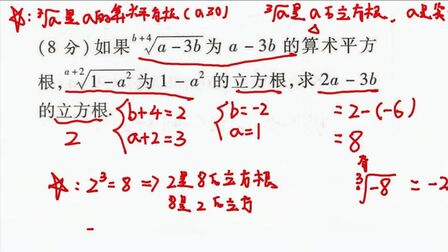 ☆: ³√a 是 a 的算术平方根 (a≥0) ³√a 是 a 的立方根, a是实
(8 分) 如果 ᵇ⁺⁴√(a-3b) 为 a-3b 的算术平方
根, ᵃ⁺²√(1-a²) 为 1-a² 的立方根, 求 2a-3b
的立方根. { b+4=2 { b=-2 =2-(-6)
2 a+2=3 a=1 =8
☆: 2³=8 => 2是8的立方根 ³√-8 = -2
8是2的立方